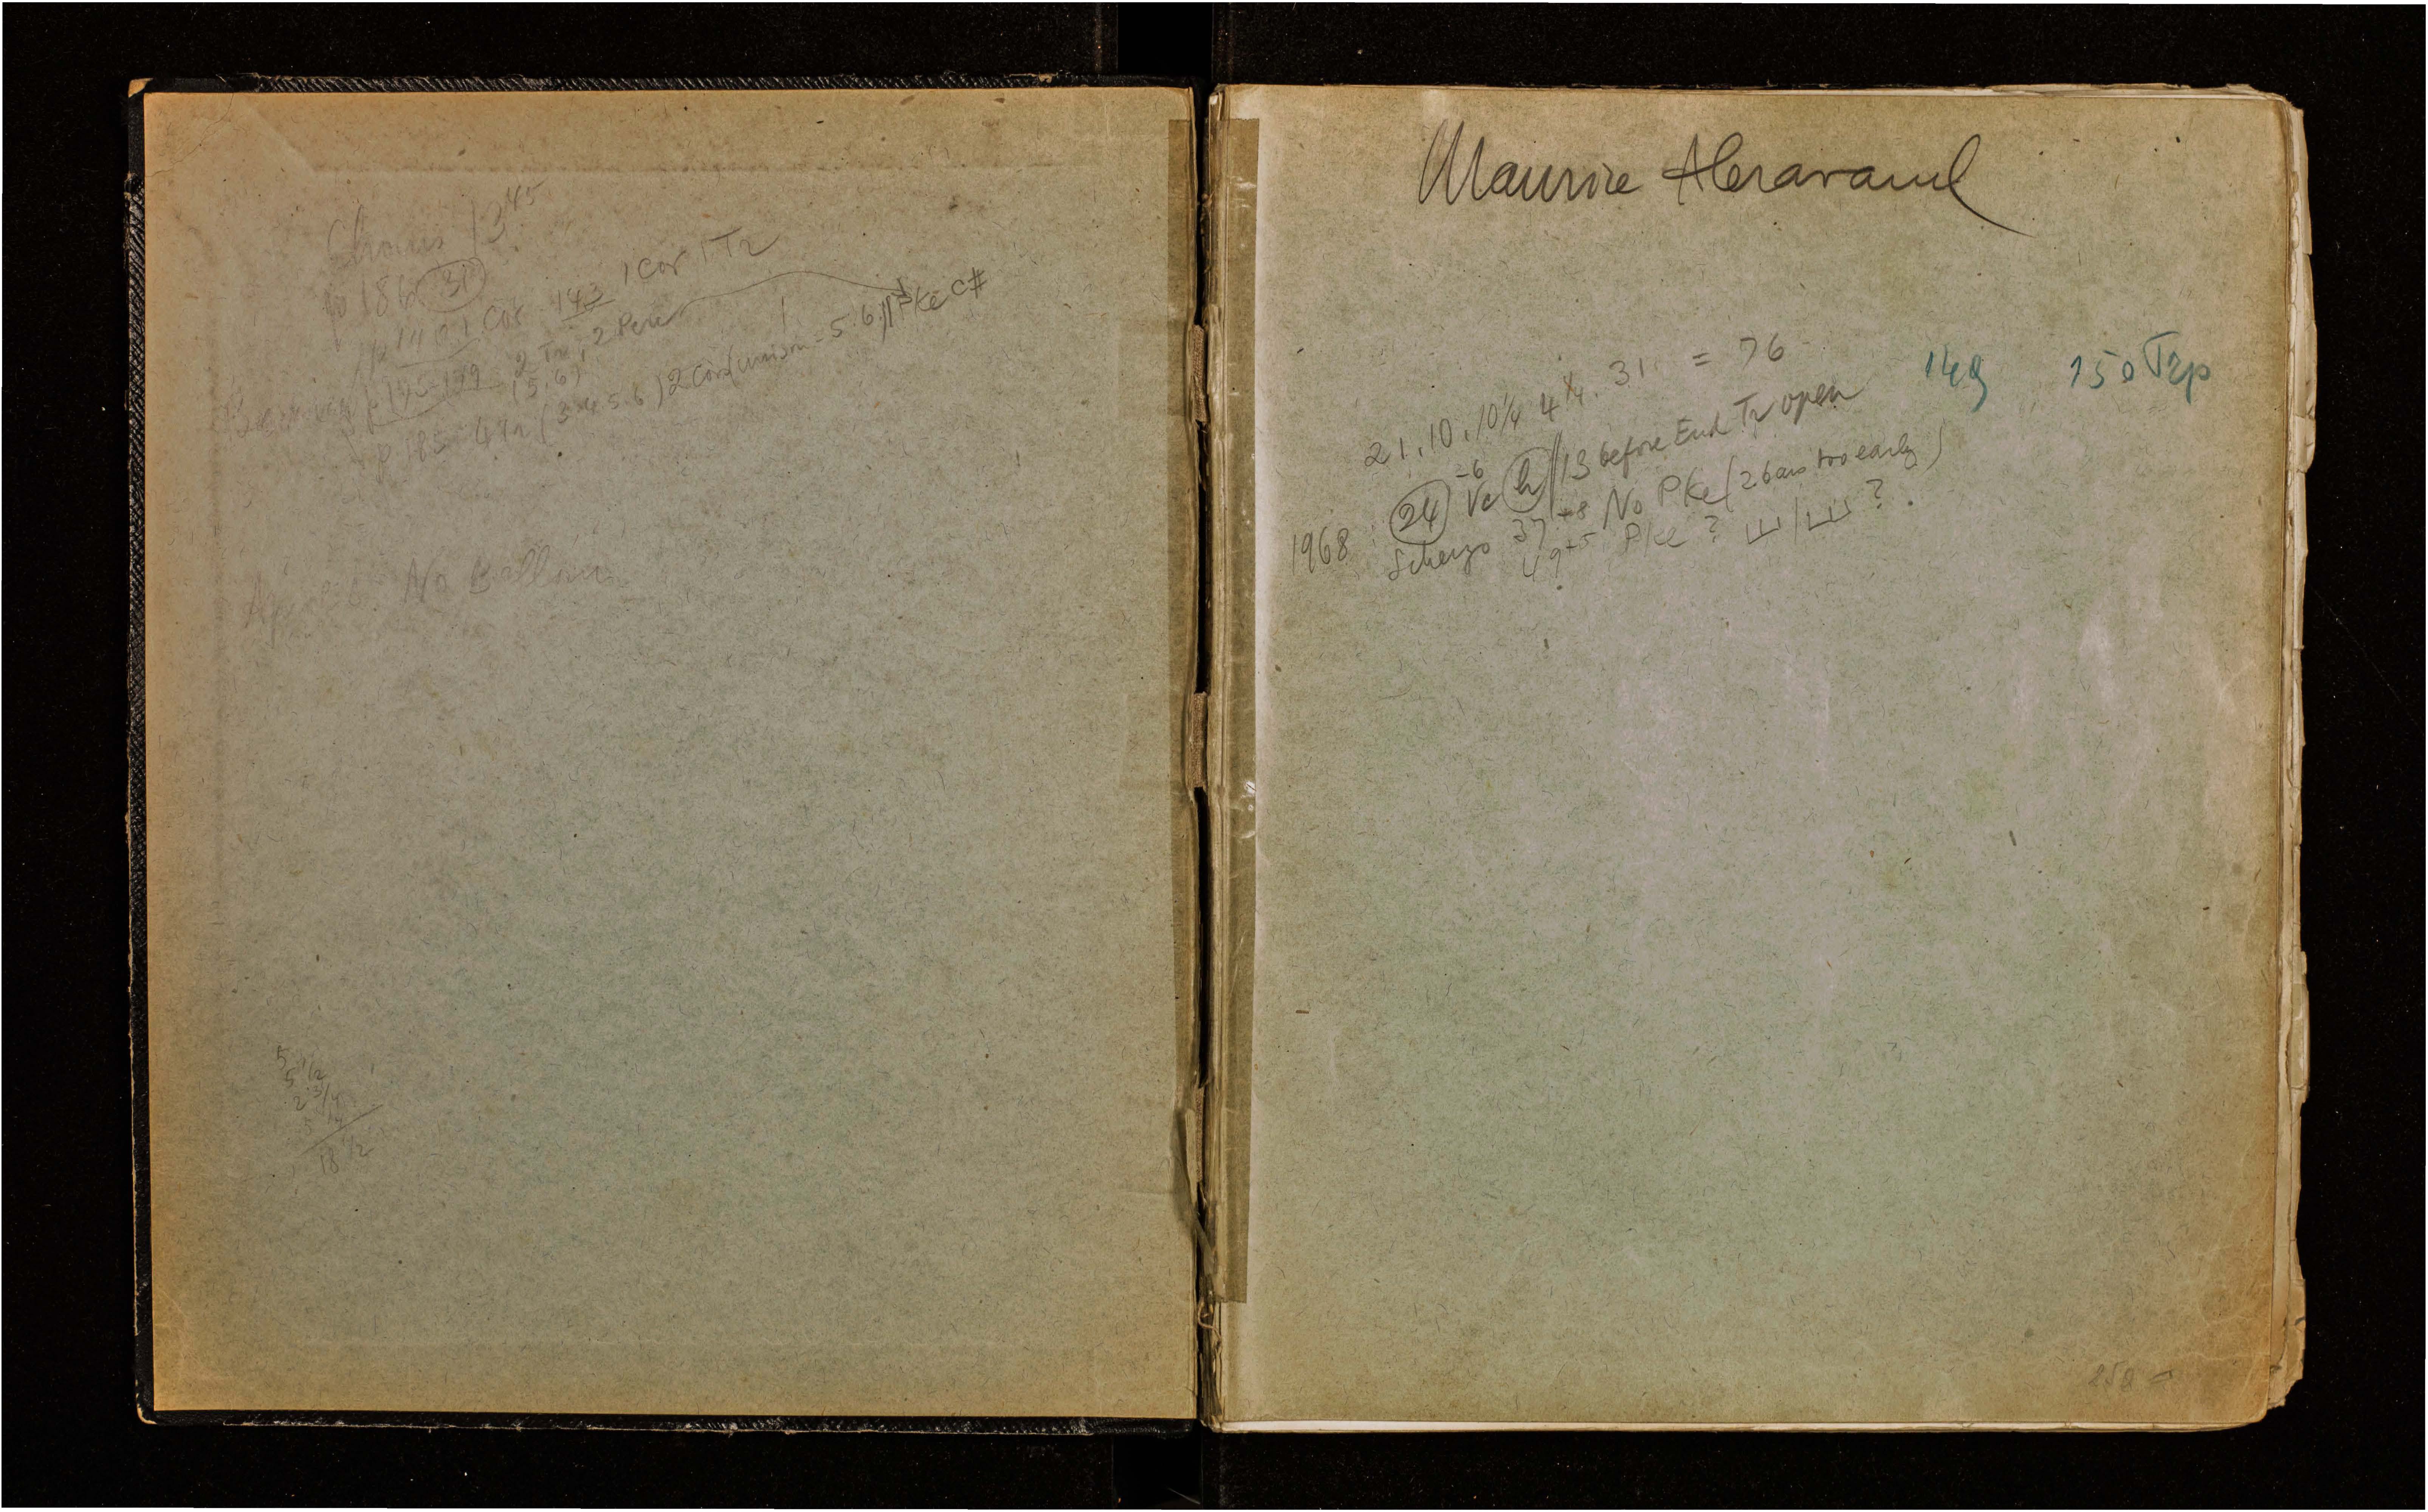 Chorus 13 45
p 186 31
p 141 1 Cor 143 1 Cor 1 Tr
p 195-199 2 Tr, 2 Perc
(5, 6)
p 185 4 Tr (3.4.5.6) 2 Cor (unison = 5.6) Pke C#
No
5
5 1/2
2 3/4
5 1/4
18 1/2
Maurice Abravanel
21. 10. 10 1/4 4 1/4. 31. = 76
149 150 Trp
1968 : 24 -6 Vc h // 13 before End Tr open
Scherzo 37 +8 No Pke (2 bars too early)
49 +5 Pke ? ?
250 =